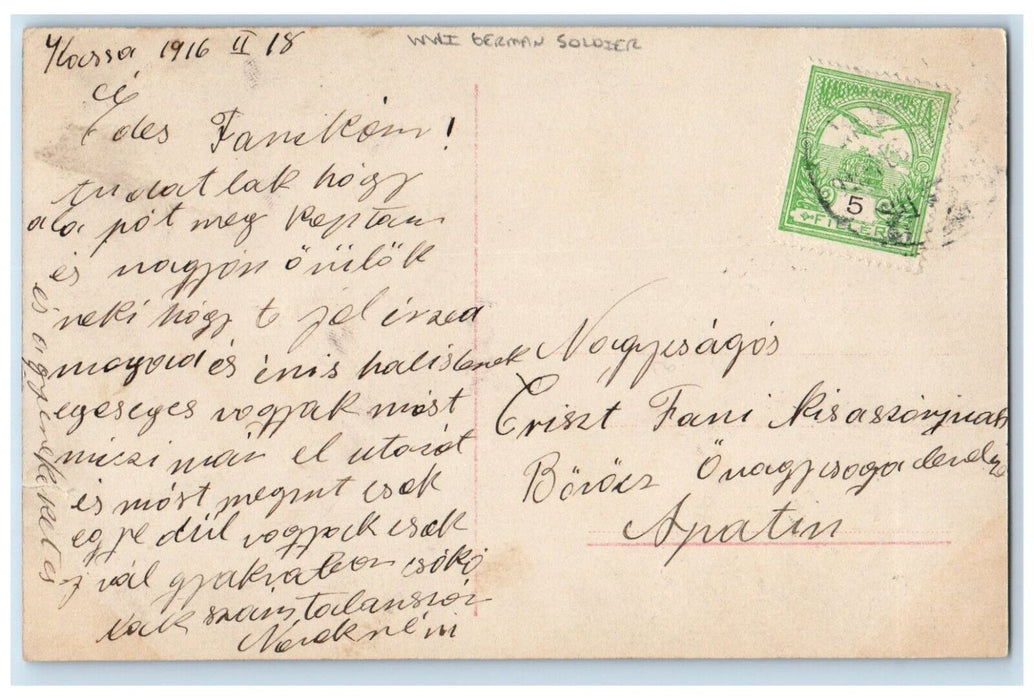 Kassa 1916 II 18
WWI GERMAN SOLDIER
Édes Fanikám!
tudat lak hogy
a la pót meg kaptam
és nagyon örülök
neki hogy t jól érzed
magad és énis hálistenek
egeseges vagyak most
miczi már el utazot
és most megint csak
egye dül vagyok csak
gyakrabban csókó
lak számtalanszor
MAGYAR KIR. POSTA
5
FILLÉR
Nagyságós
Criszt Fani kisaszonynak
Böröcz Önagysaga
Apatin